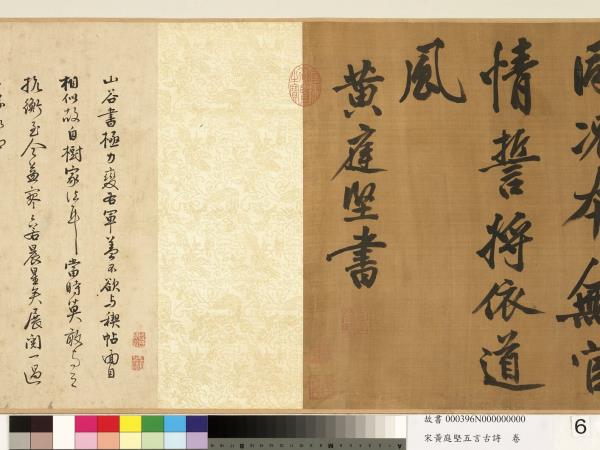 際況本無宦
情誓將依道
風
黃庭堅書
山谷書極力變右軍蓋不欲与禊帖面目
相似故自樹家法耳當時莫敢与之
抗衡至今益寥寥若晨星矣展閱一過
故書 000396N000000000
宋黃庭堅五言古詩 卷
6